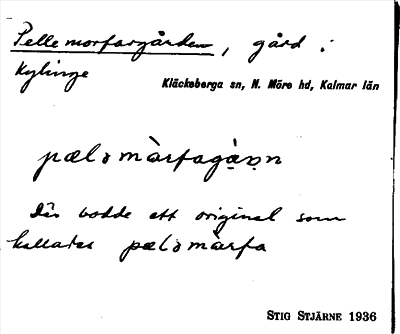 Pelle morfargården, gård i
Kylinge
Kläckeberga sn, N. Möre hd, Kalmar län
pælə màrfagàṇn
Där bodde ett original som
kallades pælə màrfa
STIG STJÄRNE 1936